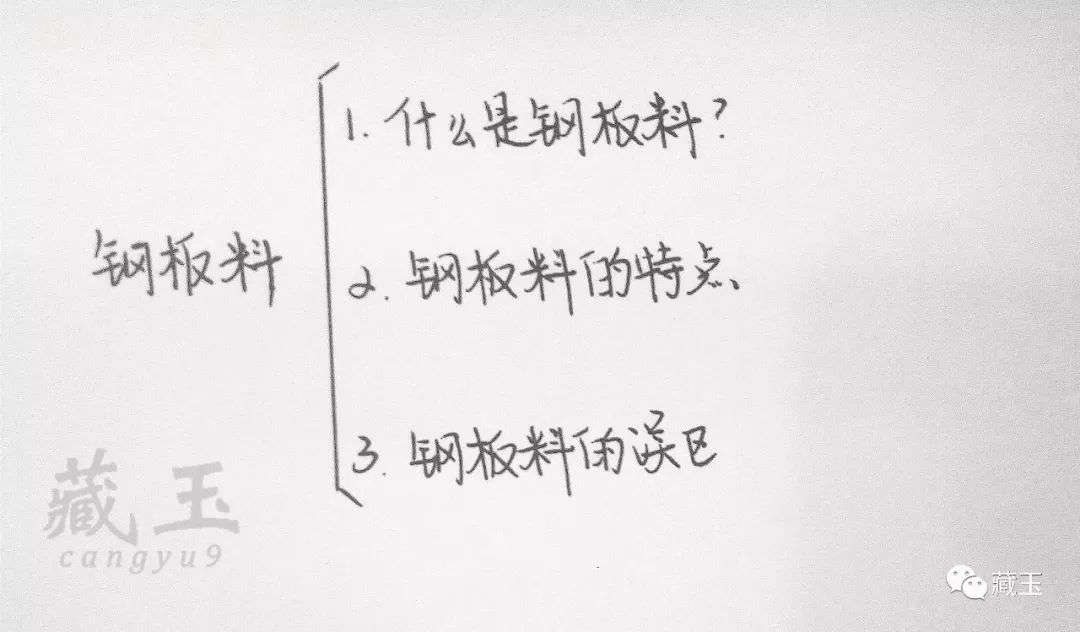 1. 什么是钢板料?
钢板料
2. 钢板料的特点
3. 钢板料的误区
藏玉
cangyu9
藏玉